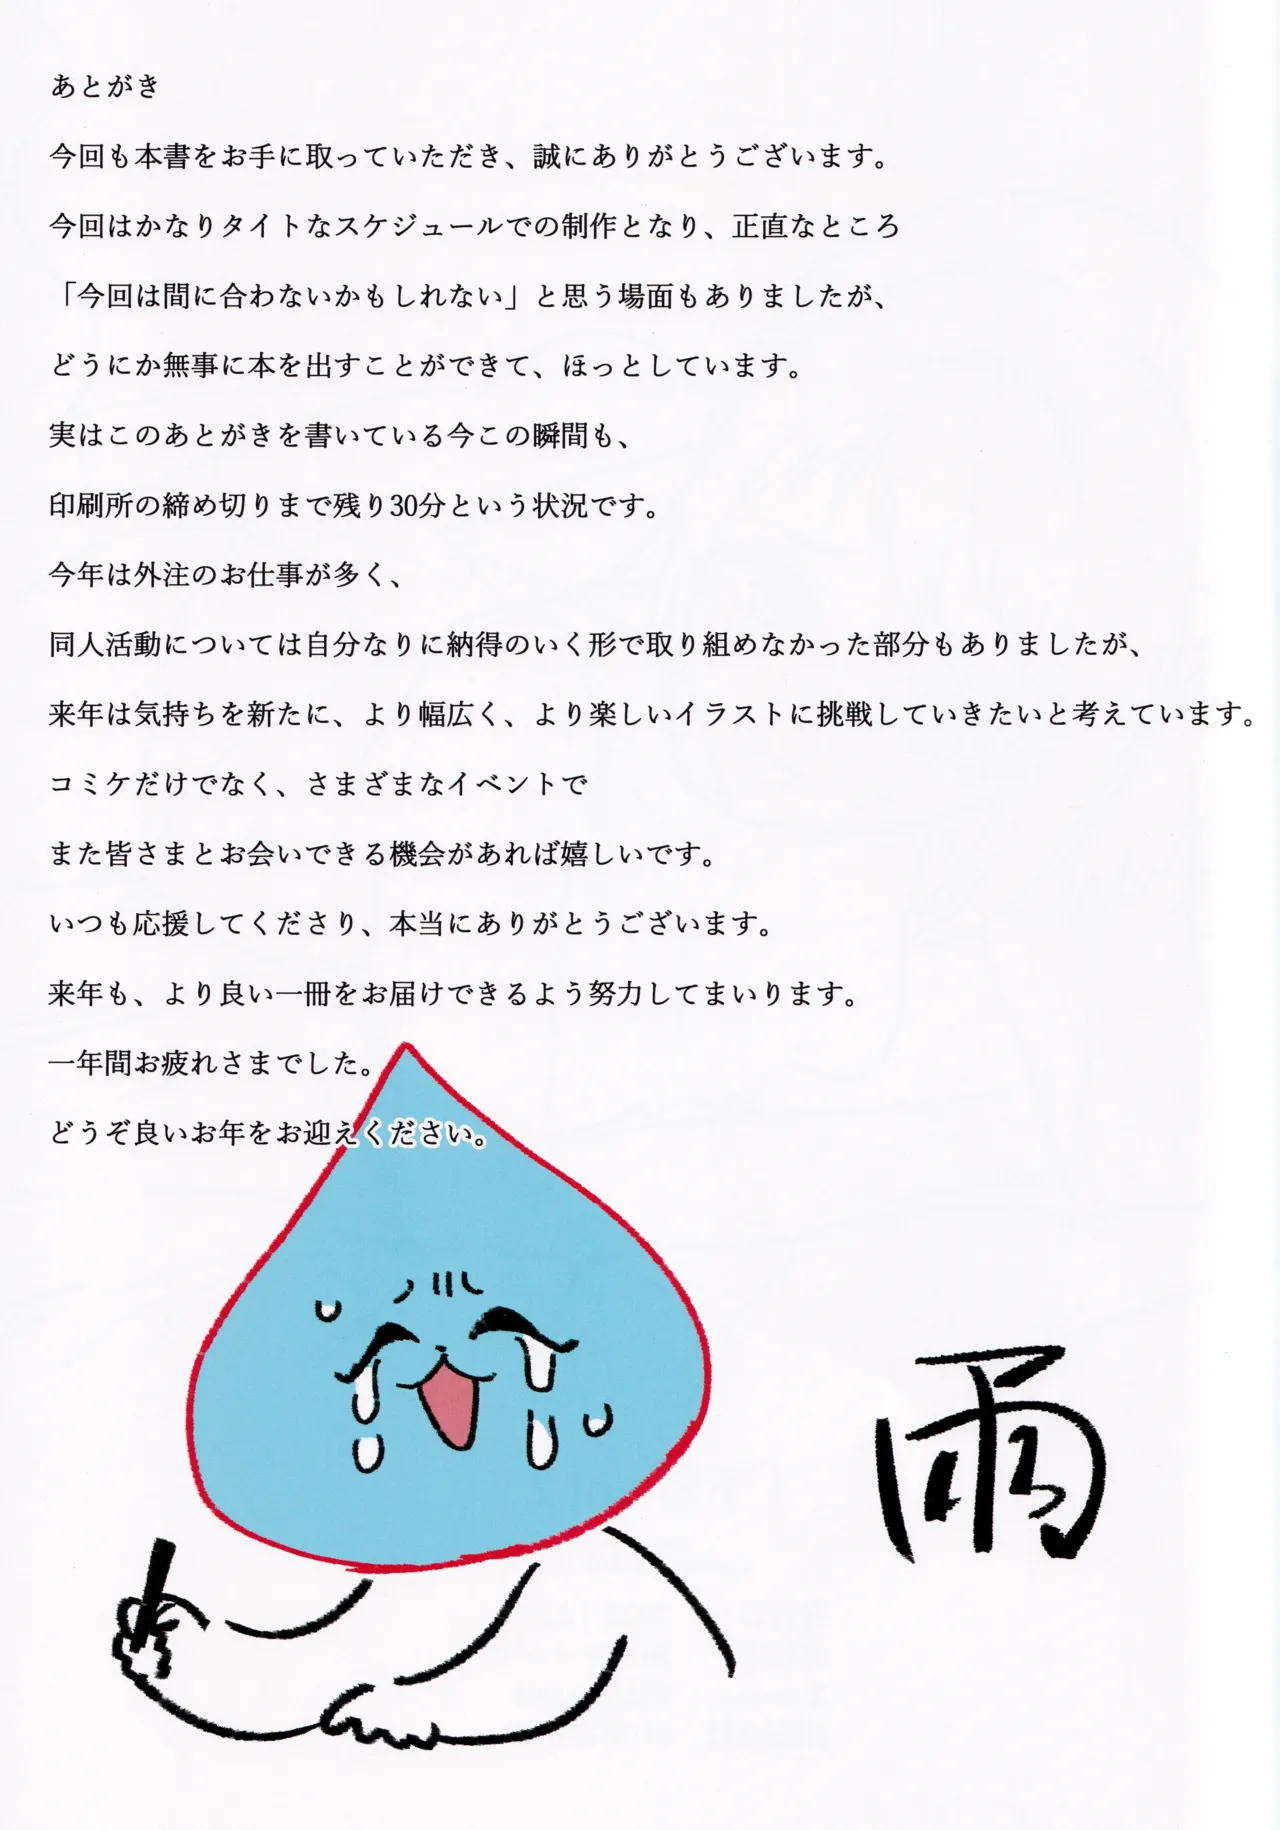 あとがき
今回も本書をお手に取っていただき、誠にありがとうございます。
今回はかなりタイトなスケジュールでの制作となり、正直なところ
「今回は間に合わないかもしれない」と思う場面もありましたが、
どうにか無事に本を出すことができて、ほっとしています。
実はこのあとがきを書いている今この瞬間も、
印刷所の締め切りまで残り30分という状況です。
今年は外注のお仕事が多く、
同人活動については自分なりに納得のいく形で取り組めなかった部分もありましたが、
来年は気持ちを新たに、より幅広く、より楽しいイラストに挑戦していきたいと考えています。
コミケだけでなく、さまざまなイベントで
また皆さまとお会いできる機会があれば嬉しいです。
いつも応援してくださり、本当にありがとうございます。
来年も、より良い一冊をお届けできるよう努力してまいります。
一年間お疲れさまでした。
どうぞ良いお年をお迎えください。
雨